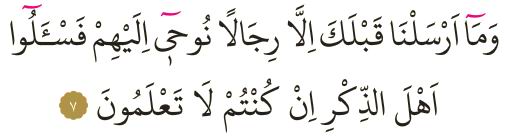 وَمَٓا اَرْسَلْنَا قَبْلَكَ اِلَّا رِجَالًا نُوحٖٓي اِلَيْهِمْ فَسْـَٔلُٓوا
اَهْلَ الذِّكْرِ اِنْ كُنْتُمْ لَا تَعْلَمُونَ ٧